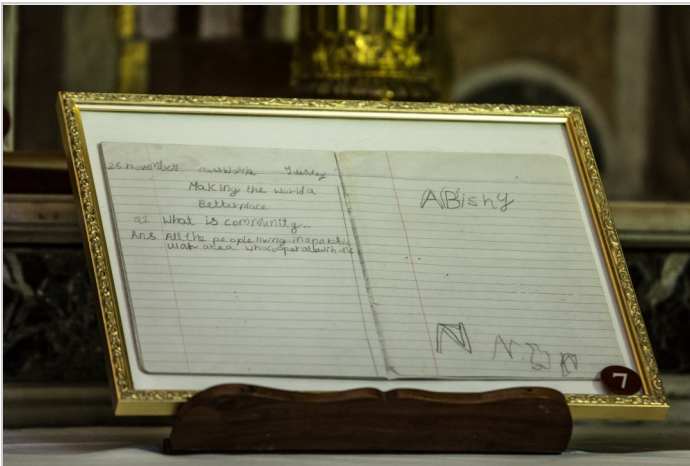 25 november classwork Tuesday
Making the world a
Better place
Q1 What is community..
Ans All the people living in a partic
ular area who cooperate with
ABishy
N N N
7